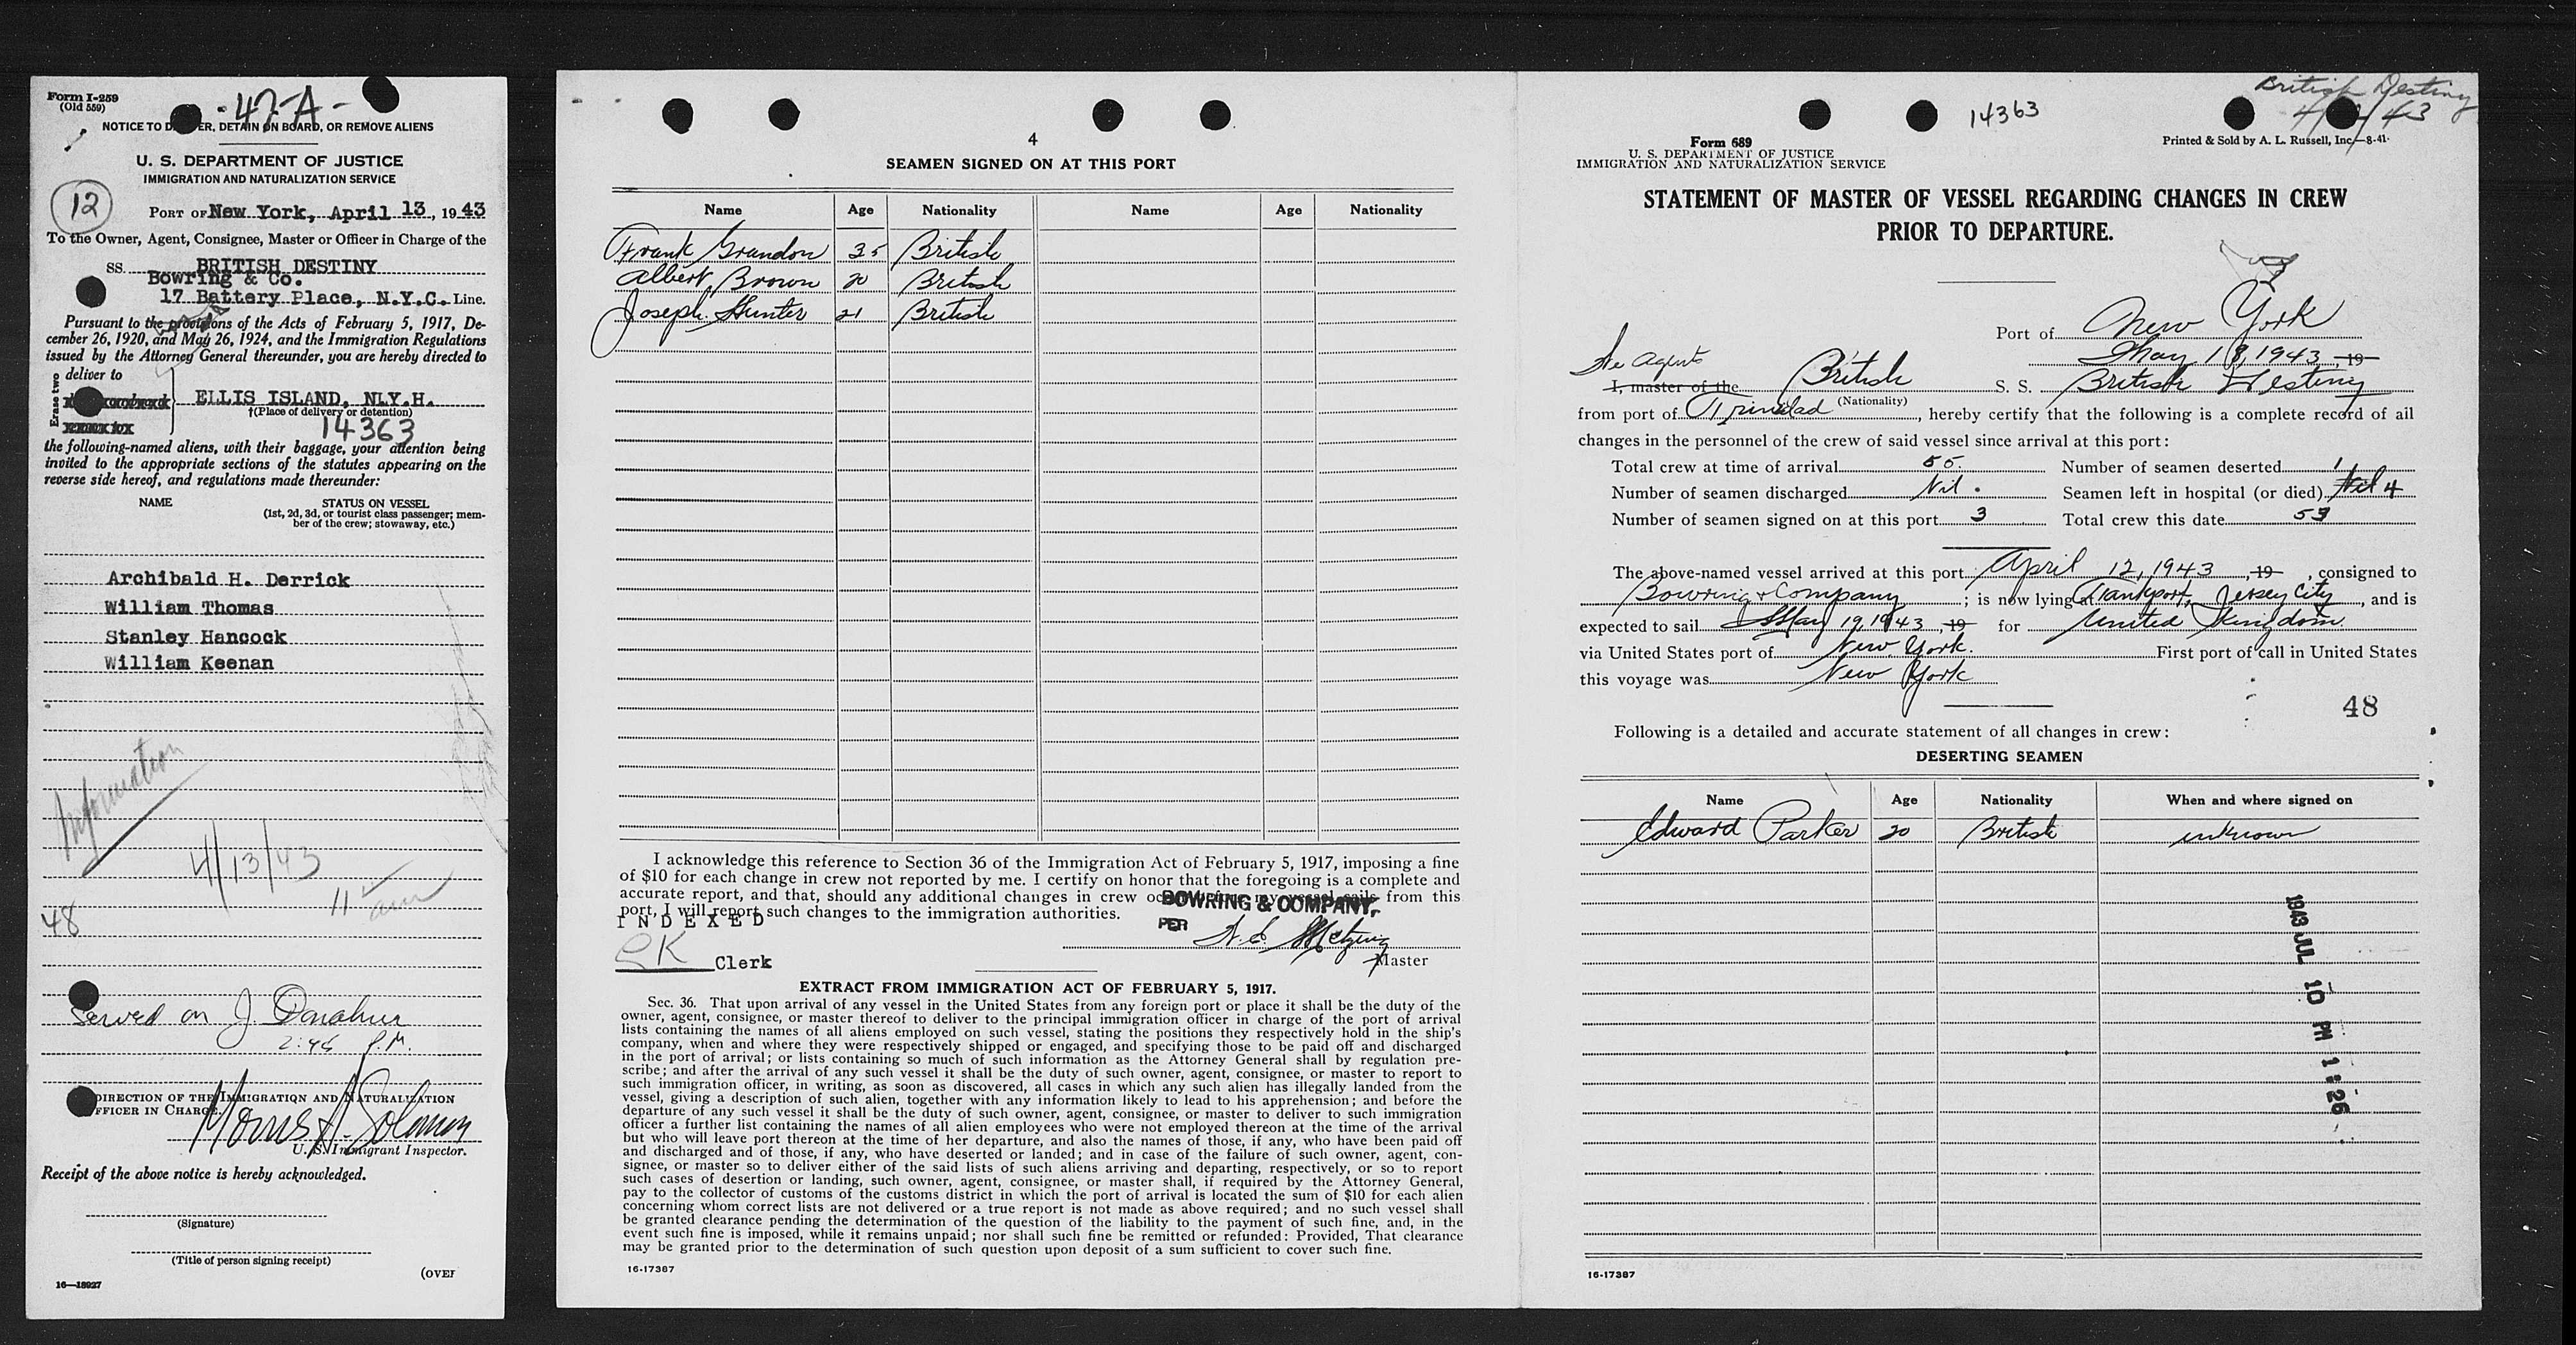 Form I-259
(Old 559)
-47-A-
NOTICE TO D ER, DETAIN ON BOARD, OR REMOVE ALIENS
U. S. DEPARTMENT OF JUSTICE
IMMIGRATION AND NATURALIZATION SERVICE
12
PORT OF New York, April 13, 1943
To the Owner, Agent, Consignee, Master or Officer in Charge of the
SS. BRITISH DESTINY
Bowring & Co.
17 Battery Place, N.Y.C. Line.
Pursuant to the provisions of the Acts of February 5, 1917, De-
cember 26, 1920, and May 26, 1924, and the Immigration Regulations
issued by the Attorney General thereunder, you are hereby directed to
Erase two
deliver to
ELLIS ISLAND, NLY.H.
†(Place of delivery or detention)
14363
the following-named aliens, with their baggage, your attention being
invited to the appropriate sections of the statutes appearing on the
reverse side hereof, and regulations made thereunder:
NAME STATUS ON VESSEL
(1st, 2d, 3d, or tourist class passenger; mem-
ber of the crew; stowaway, etc.)
Archibald H. Derrick
William Thomas
Stanley Hancock
William Keenan
Information
4/13/43
11 am
48
Served on J. Donahue
2:45 P.M.
DIRECTION OF THE IMMIGRATION AND NATURALIZATION
OFFICER IN CHARGE.
Morris A. Solomon
U. S. Immigrant Inspector.
Receipt of the above notice is hereby acknowledged.
(Signature)
(Title of person signing receipt)
16—18927
(OVER
4
SEAMEN SIGNED ON AT THIS PORT
Name Age Nationality Name Age Nationality
Frank Grandon 35 British
Albert Brown 20 British
Joseph Hunter 21 British
I acknowledge this reference to Section 36 of the Immigration Act of February 5, 1917, imposing a fine
of $10 for each change in crew not reported by me. I certify on honor that the foregoing is a complete and
accurate report, and that, should any additional changes in crew oc my vessel sails from this
port, I will report such changes to the immigration authorities.
BOWRING & COMPANY,
INDEXED
PER
EK Clerk
Master
EXTRACT FROM IMMIGRATION ACT OF FEBRUARY 5, 1917.
Sec. 36. That upon arrival of any vessel in the United States from any foreign port or place it shall be the duty of the
owner, agent, consignee, or master thereof to deliver to the principal immigration officer in charge of the port of arrival
lists containing the names of all aliens employed on such vessel, stating the positions they respectively hold in the ship's
company, when and where they were respectively shipped or engaged, and specifying those to be paid off and discharged
in the port of arrival; or lists containing so much of such information as the Attorney General shall by regulation pre-
scribe; and after the arrival of any such vessel it shall be the duty of such owner, agent, consignee, or master to report to
such immigration officer, in writing, as soon as discovered, all cases in which any such alien has illegally landed from the
vessel, giving a description of such alien, together with any information likely to lead to his apprehension; and before the
departure of any such vessel it shall be the duty of such owner, agent, consignee, or master to deliver to such immigration
officer a further list containing the names of all alien employees who were not employed thereon at the time of the arrival
but who will leave port thereon at the time of her departure, and also the names of those, if any, who have been paid off
and discharged and of those, if any, who have deserted or landed; and in case of the failure of such owner, agent, con-
signee, or master so to deliver either of the said lists of such aliens arriving and departing, respectively, or so to report
such cases of desertion or landing, such owner, agent, consignee, or master shall, if required by the Attorney General,
pay to the collector of customs of the customs district in which the port of arrival is located the sum of $10 for each alien
concerning whom correct lists are not delivered or a true report is not made as above required; and no such vessel shall
be granted clearance pending the determination of the question of the liability to the payment of such fine, and, in the
event such fine is imposed, while it remains unpaid; nor shall such fine be remitted or refunded: Provided, That clearance
may be granted prior to the determination of such question upon deposit of a sum sufficient to cover such fine.
16-17387
British Destiny
14363
Form 689
U. S. DEPARTMENT OF JUSTICE
IMMIGRATION AND NATURALIZATION SERVICE
Printed & Sold by A. L. Russell, Inc.—8-41.
STATEMENT OF MASTER OF VESSEL REGARDING CHANGES IN CREW
PRIOR TO DEPARTURE.
Port of New York
May 18, 1943, 19
We Agents
I, master of the British S. S. British Destiny
(Nationality)
from port of Trinidad, hereby certify that the following is a complete record of all
changes in the personnel of the crew of said vessel since arrival at this port:
Total crew at time of arrival 55. Number of seamen deserted 1
Number of seamen discharged Nil. Seamen left in hospital (or died) Nil 4
Number of seamen signed on at this port 3 Total crew this date 53
The above-named vessel arrived at this port April 12, 1943, 19 , consigned to
Bowring & Company; is now lying at Tankport, Jersey City, and is
expected to sail May 19, 1943, 19 for United Kingdom
via United States port of New York. First port of call in United States
this voyage was New York
48
Following is a detailed and accurate statement of all changes in crew:
DESERTING SEAMEN
Name Age Nationality When and where signed on
Edward Parker 20 British unknown
1943 JUL 10 PM 1:26
16-17387